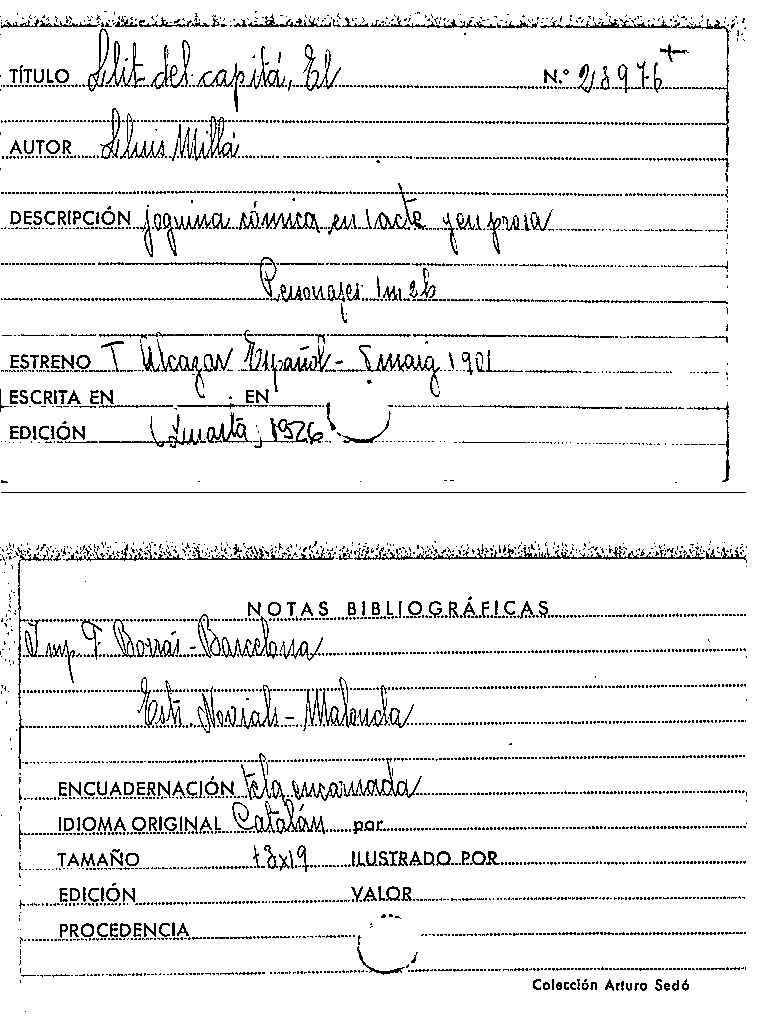 TÍTULO Llit del capitá, El N.º 28976 +
AUTOR Lluis Millá
DESCRIPCIÓN joguina cómica en 1 acte y en prosa
Personajes 1m 2h
ESTRENO T Alcazar Español - 5 maig 1901
ESCRITA EN EN
EDICIÓN Quarta, 1926
NOTAS BIBLIOGRÁFICAS
Imp F Borrás - Barcelona
Novials - Malonda
ENCUADERNACIÓN tela encarnada
IDIOMA ORIGINAL Catalán por
TAMAÑO 13x19 ILUSTRADO POR
EDICIÓN VALOR
PROCEDENCIA
Colección Arturo Sedó